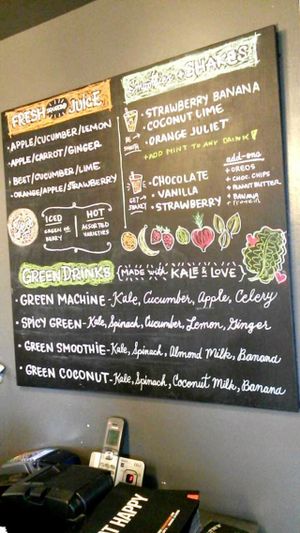 FRESH SQUEEZED JUICE
• APPLE/CUCUMBER/LEMON
• APPLE/CARROT/GINGER
• BEET/CUCUMBER/LIME
• ORANGE/APPLE/STRAWBERRY
ICED
GREEN OR
BERRY
HOT
ASSORTED
VARIETIES
& SHAKES
BE SMOOTH
• STRAWBERRY BANANA
• COCONUT LIME
• ORANGE JULIET
+ADD MINT TO ANY DRINK!
GET SHAKEY
• CHOCOLATE
• VANILLA
• STRAWBERRY
add-ons
• OREOS
• CHOC. CHIPS
• PEANUT BUTTER
• BANANA
GREEN DRINKS (MADE with KALE & LOVE)
• GREEN MACHINE-Kale, Cucumber, Apple, Celery
• SPICY GREEN-Kale, Spinach, Cucumber, Lemon, Ginger
• GREEN SMOOTHIE-Kale, Spinach, Almond Milk, Banana
• GREEN COCONUT-Kale, Spinach, Coconut Milk, Banana
HAPPY